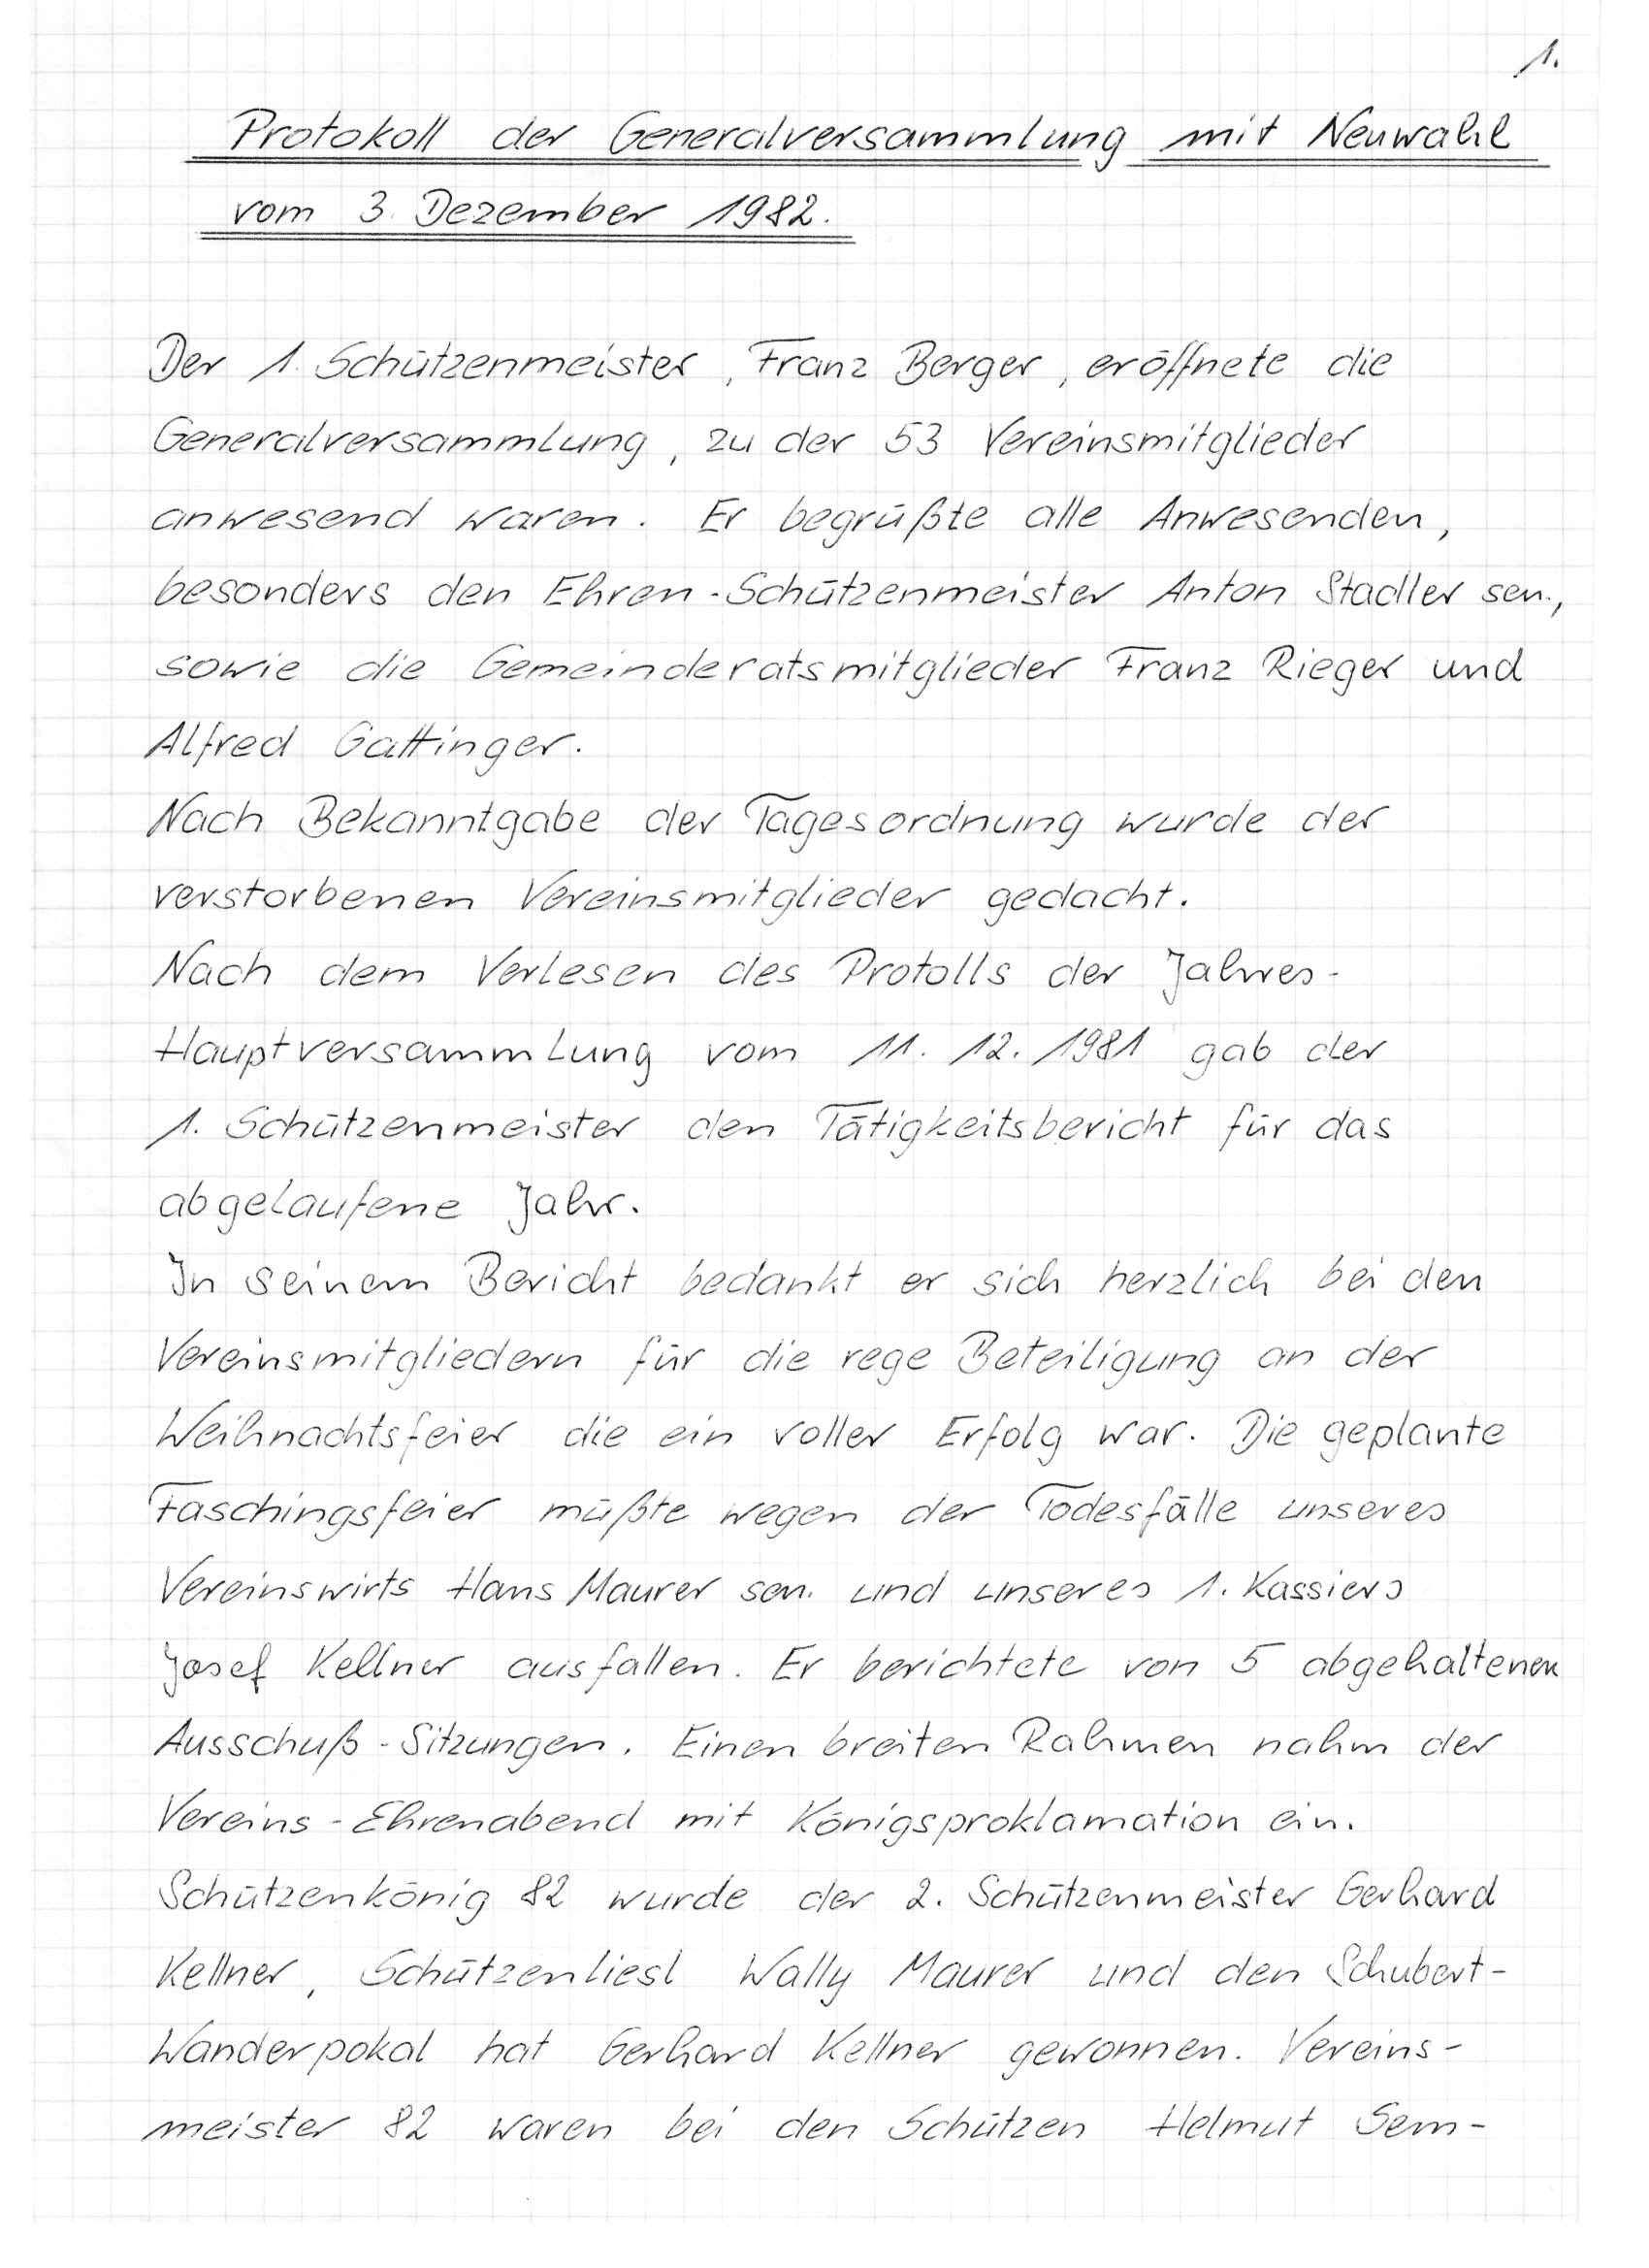 1.
Protokoll der Generalversammlung mit Neuwahl
vom 3. Dezember 1982.
Der 1. Schützenmeister, Franz Berger, eröffnete die
Generalversammlung, zu der 53 Vereinsmitglieder
anwesend waren. Er begrüßte alle Anwesenden,
besonders den Ehren-Schützenmeister Anton Stadler sen.,
sowie die Gemeinderatsmitglieder Franz Rieger und
Alfred Gattinger.
Nach Bekanntgabe der Tagesordnung wurde der
verstorbenen Vereinsmitglieder gedacht.
Nach dem Verlesen des Protolls der Jahres-
Hauptversammlung vom 11. 12. 1981 gab der
1. Schützenmeister den Tätigkeitsbericht für das
abgelaufene Jahr.
In seinem Bericht bedankt er sich herzlich bei den
Vereinsmitgliedern für die rege Beteiligung an der
Weihnachtsfeier die ein voller Erfolg war. Die geplante
Faschingsfeier müßte wegen der Todesfälle unseres
Vereinswirts Hans Maurer sen. und unseres 1. Kassiers
Josef Kellner ausfallen. Er berichtete von 5 abgehaltenen
Ausschuß-Sitzungen. Einen breiten Rahmen nahm der
Vereins-Ehrenabend mit Königsproklamation ein.
Schützenkönig 82 wurde der 2. Schützenmeister Gerhard
Kellner, Schützenliesl Wally Maurer und den Schubert-
Wanderpokal hat Gerhard Kellner gewonnen. Vereins-
meister 82 waren bei den Schützen Helmut Sem-